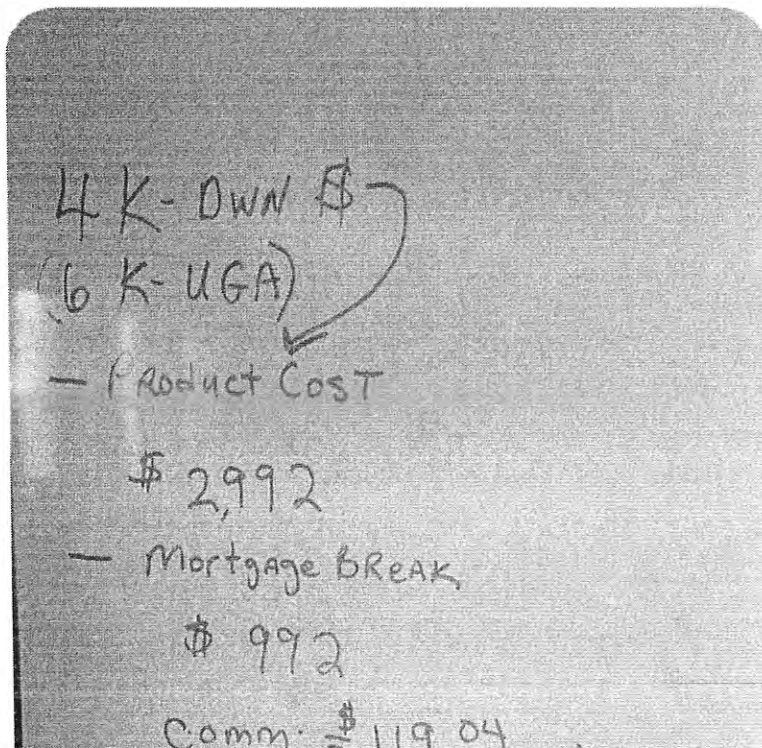 4 K- DWN $
(6 K- UGA)
— Product Cost
$ 2,992
— Mortgage Break
$ 992
Comm. $ 119.04